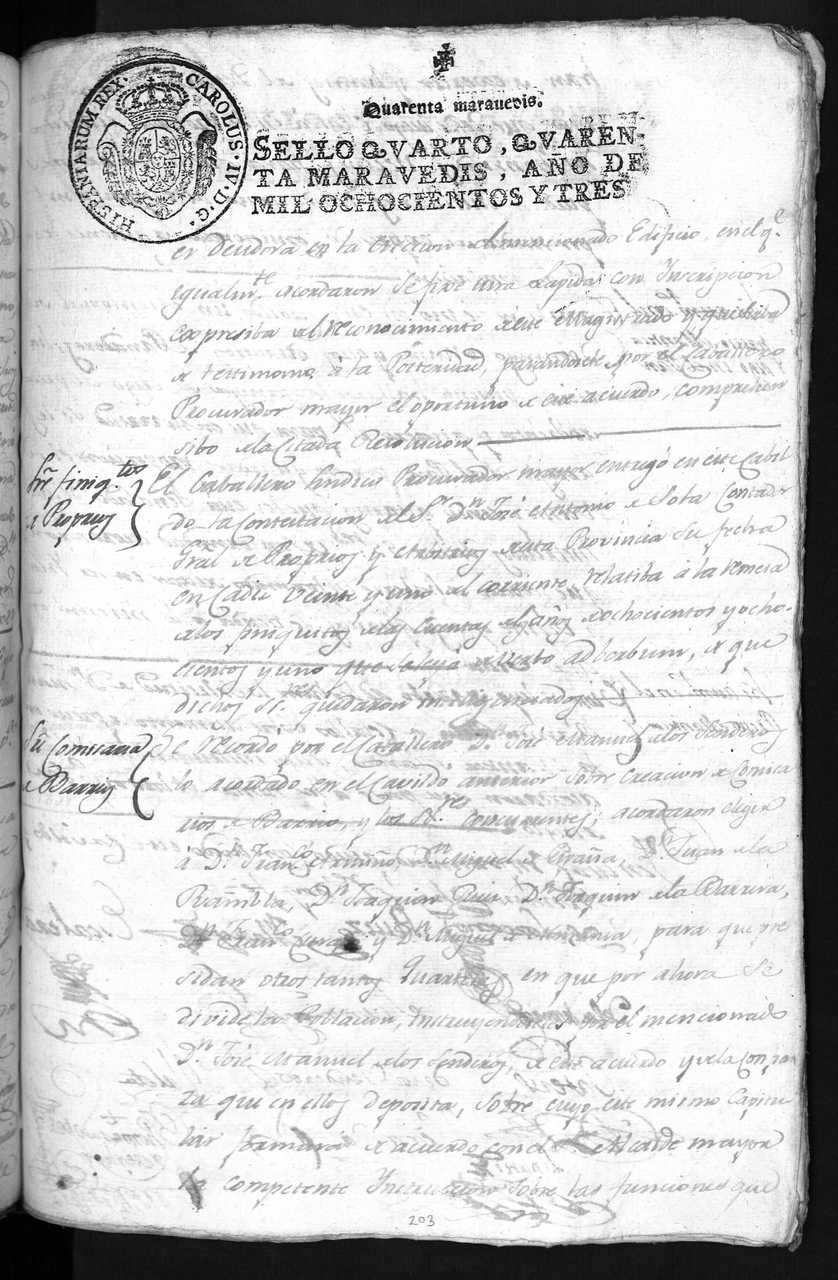 HISPANIARUM REX. CAROLUS. IV. D. G.
Quarenta maravedis.
SELLO QVARTO, QVAREN-
TA MARAVEDIS, AÑO DE
MIL OCHOCIENTOS Y TRES
er deudora en la ereccion mencionado Edificio, en el q.e
igualm.te acordaron se fixe una Lapida con Inscripcion
expresiba al reconocimiento de este Magistrado y que sirba
de testimonio á la Posteridad, pasandosele por el Caballero
Procurador mayor el oportuno de este acuerdo, comprehen
sibo de la Citada Resolucion
Sre finiq.tos
de Propios
El Caballero Sindico Procurador mayor entregó en este Cabil
do la Contestacion del S.r D.n José Antonio de Sota Contador
Gral de Propios y Arbitrios de esta Provincia su fecha
en Cadiz veinte y uno del corriente, relatiba á la remesa
de los finiquitos de las Cuentas del año de ochocientos y ocho-
cientos y uno que de verbo ad berbum, de que
dichos S.res quedaron inteligenciados
Sre Comisarios
de Barrio
Se recordó por el Caballero D. José Manuel de los Senderos
lo acordado en el Cavildo anterior sobre creacion de Comisa
rios de Barrio, y los S.res Concurrentes, acordaron elegir
á D.n Fran.co D.n Miguel de D.n Juan de la
Rambla, D.n Joaquin Ruiz D.n Joaquin de la Barrera,
D.n Fran.co y D.n Miguel de para que pre
sidan otros tantos Quarteles en que por ahora se
divide la Poblacion, instruyendoles por el mencionado
D.n José Manuel de los Senderos, de este acuerdo y de la confian
za que en ellos deposita, sobre cuyo este mismo Capitu
lar formará de acuerdo con el Alcalde mayor
la competente Instruccion sobre las funciones que
203